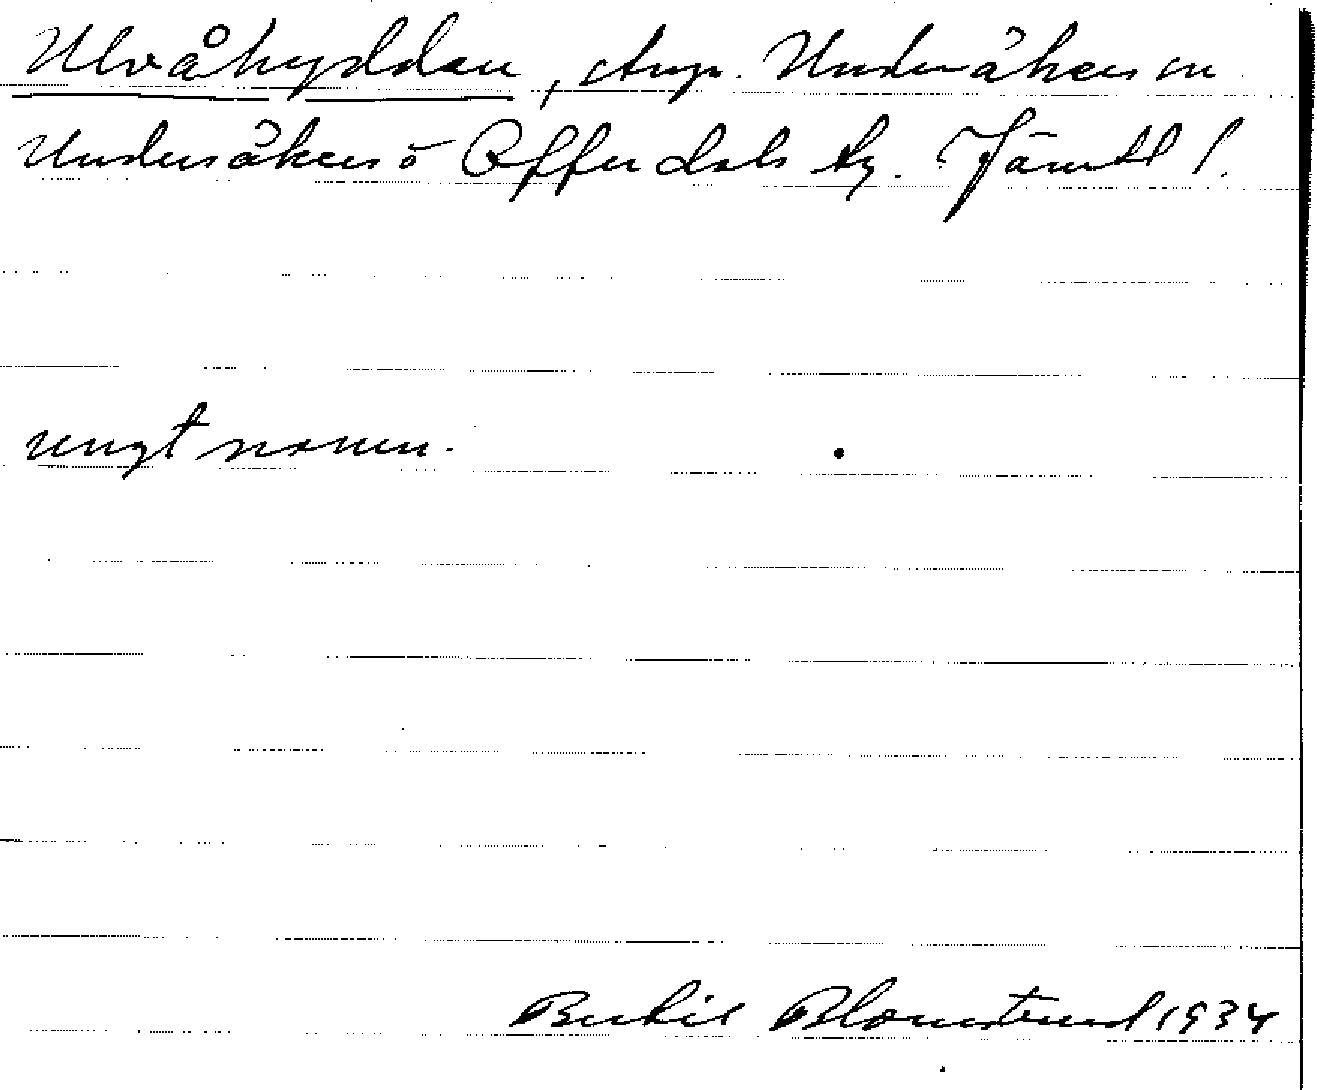 Ulvåhyddan, stup. Undersåkers sn
Undersåkers o Offerdals tg. Jämtl l.
ungt namn.
Bertil Blomstrand 1934